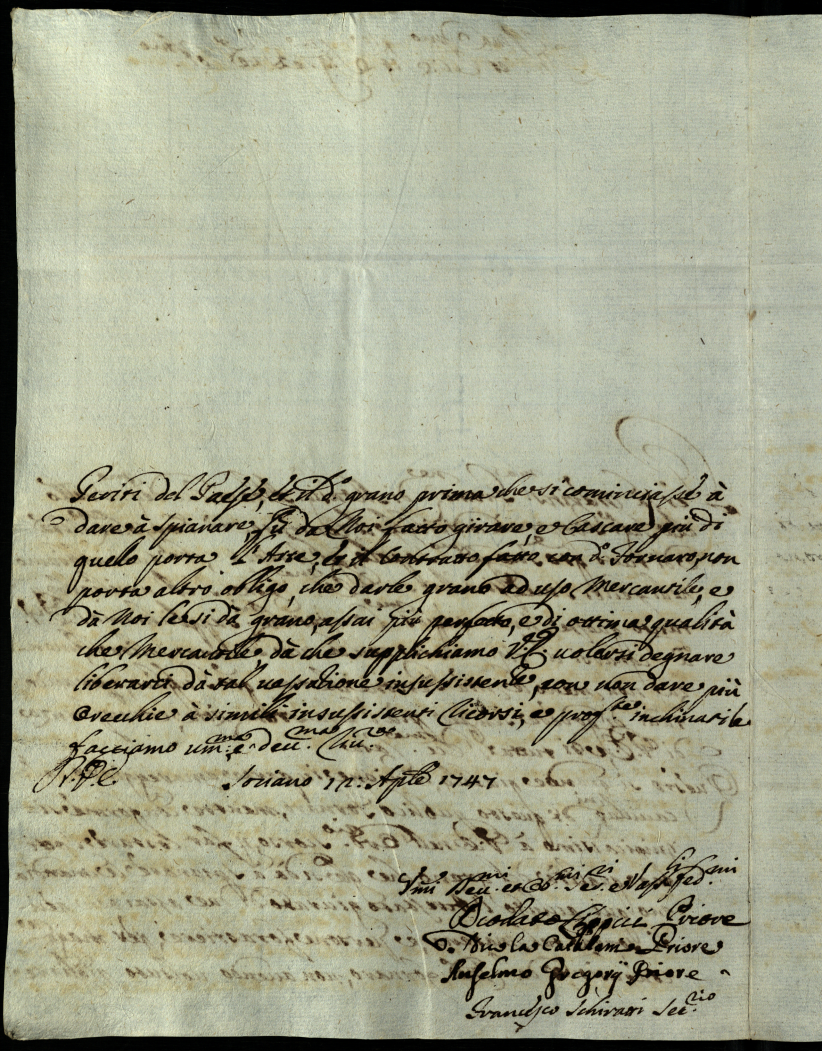 Periti del Paese, et il d.º grano prima che si cominciasse à
dare à spianare, fù da Noi fatto girare, e cascare più di
quelo porta l'Arte, et il Contratto fatto con d.º Fornaro, non
porta altro obligo, che darle grano ad uso Mercantile, e
dà Noi le si dà grano, assai più perfetto, e di ottima qualità
che Mercantile dà che supplichiamo V. E. volersi degnare
liberarci dà tal vessazione insussistente, con non dare più
orecchie à simili insussistenti Ricorsi, e prof.te inchinatile
facciamo um.ma e deu.ma Riu.
Soriano 12: Aple 1747
Vmi Deu.mi et Ob.mi Ser.ri e Vass. fed.mi
Deodato Priore
D. Nicola Catalani Priore
Anselmo Gregorij Priore
Francesco Schiratti Seg.rio